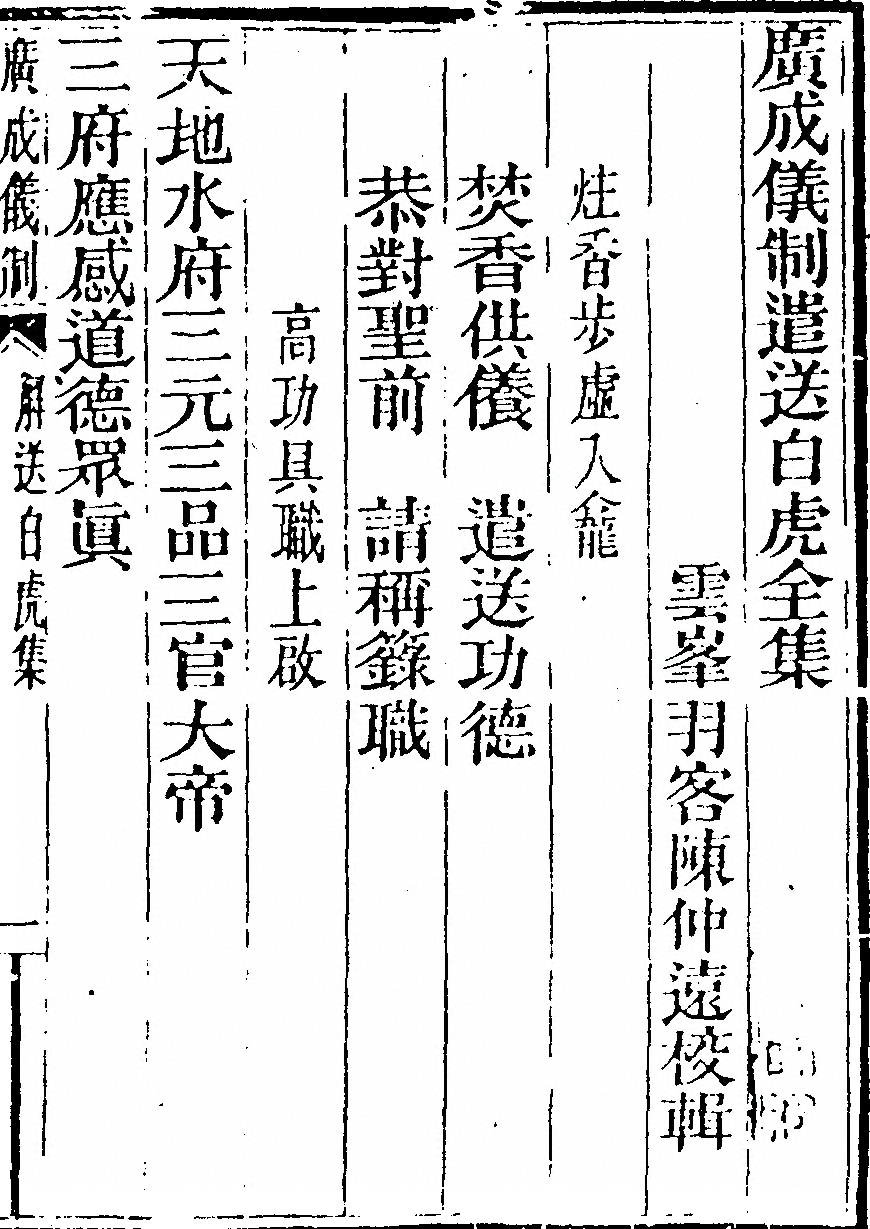 廣成儀制遣送白虎全集
雲峯羽客陳仲遠校輯
炷香步虛入龕
焚香供儀　遣送功德
恭對聖前　請稱籙職
高功具職上啟
天地水府三元三品三官大帝
三府應感道德眾眞
廣成儀制　解送白虎集　一